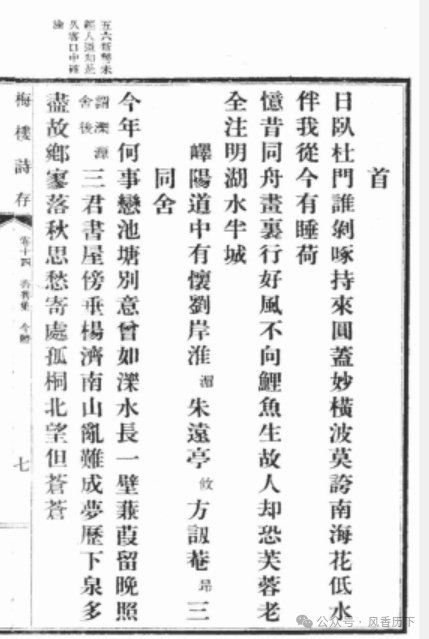 首
日臥杜門誰剝啄持來圓蓋妙橫波莫誇南海花低水
伴我從今有睡荷
憶昔同舟畫裏行好風不向鯉魚生故人却恐芙蓉老
全注明湖水半城
嶧陽道中有懷劉岸淮湄朱遠亭攸方訒菴昂三
同舍
今年何事戀池塘別意曾如濼水長一壁蒹葭留晚照
謂濼源
舍後
三君書屋傍垂楊濟南山亂難成夢歷下泉多
盡故鄉寥落秋思愁寄處孤桐北望但蒼蒼
五六
經人道
久客口中
梅樓詩存
卷十四
今體
七
公众号·风香历下